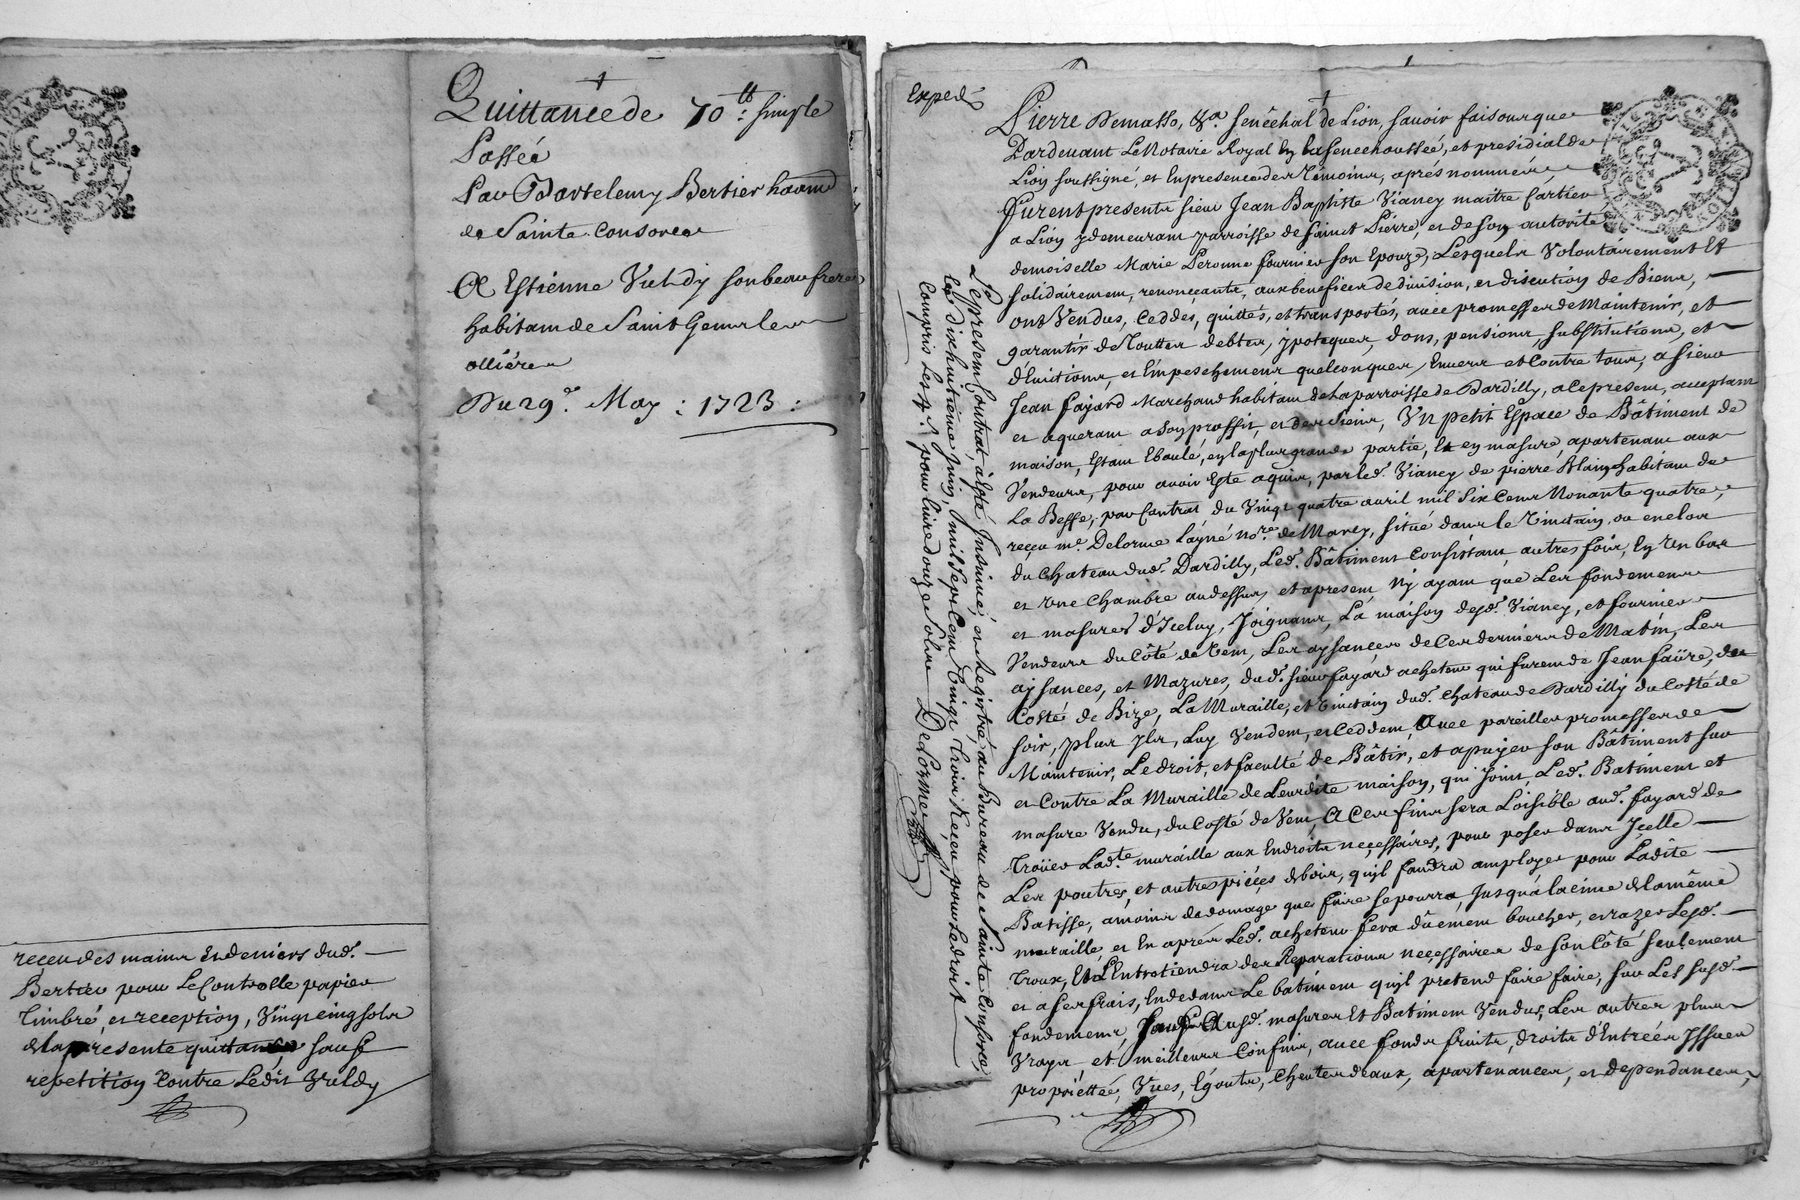 Quittance de 70ᵗᵗ: simple
Passée
Par Bartelemy Bertier habitant
de Sainte Consorce
A Estienne Vuldy son beaufrere
habitant de Saint Genis les
ollières
Du 29ᵉ. May : 1723 :
receu des mains et deniers dud.
Bertier pour le Controlle papier
timbré, et reception, vingt cinq sols
de la presente quittance sauf
repetition contre ledit Vuldy
Exped.
Pierre Demasso, &ᵃ. senêchal de Lion, savoir faisons que
Pardevant Le Notaire Royal en la seneehoussée, et presidial de
Lion soussigné, et en presence des temoins, aprés nommés,
furent presents sieur Jean Baptiste Vianey maitre
a Lion y demeurant parroisse de sainct Pierre, et de son autorité
demoiselle Marie Peronne fournier son Epouze, Lesquels Volontairement Et
solidairement, renonçants, aux benefices de division, et discution de Biens,
ont Vendus, ceddés, quittés, et transportés, avec promesses de maintenir, et
garantir de touttes debtes, ypoteques, dons, pensions, substitutions, et
d'Evictions, et Empeschements quelconques, Envers et contre tous, a sieur
Jean fayard Marchand habitant de la parroisse de Dardilly, a ce present, acceptant
et aquerant a son proffit, et des siens, Un petit Espace de Bâtiment de
maison, Estant Eboulé, en la plus grande partie, Et en masure, apartenant aux
Vendeurs, pour avoir Esté aquis, par led. Vianey de pierre Blain, habitant de
La Besse, par Contrat du Vingt quatre avril mil six Cens Nonante quatre,
reçeu mᵉ. Delorme L'ayné noʳᵉ. de Marcy, situé dans le Vinctain, ou enclos
du Chateau dud. Dardilly, Led. Bâtiment consistant, autres fois, En Un bas
et Une Chambre au dessus, et a present N'y ayant que Les fondemens
et masures d'Iceluy, Joignant, La maison desd. Vianey, et fournier
Vendeurs du Côté de Vent, Les aysances de Ces derniers de Matin, Les
aysances, et Mazures, dud. sieur fayard acheteur qui furent de Jean faûre, du
Costé de Bize, La Muraille, et Vinctain dud. Chateau de Dardilly du Costé de
soir, plus Ils, Luy Vendent, et Ceddent, Avec pareilles promesses de
Maintenir, Le droit, et faculté de Bâtir, et apuyer son Bâtiment sur
et Contre La Muraille de Leurdite maison, qui Joint, Led. Batiment et
masure Vendu, du Costé de Vent, A Ces fins sera Loisible aud. fayard de
Troüer Ladᵗᵉ. muraille aux Endroits neçessaires, pour poser dans Icelle
Les poutres, et autres pieçes de bois, qu'il faudra employer pour Ladite
Batisse, a moins de domage que faire se pourra, Jusqu'a la cime de la même
muraille, et En aprés Led. acheteur fera dûement boucher, et razer Lesd.
Troux, et L'Entretiendra des Reparations neçessaires de son Côté seulement
et a ses frais, En dedans Le bâtiment qu'il pretend faire faire, sur Les susd.
fondemens, sauf Ausd. masures Et Bâtiment Vendus, Les autres plus
Vrays, et meilleurs Confins, avec fonds fruits, droits d'Entrées Issues
proprietées, Vues, Egouts, Cheutes d'eaux, apartenances, et dependances,
Le present Contrat, a Esté Insinué, et Registré au Bureau de Sainte Consorce,
Le dixhuitiéme Juin, mil sept Cent Vingt Trois Receu, pour le droit
Compris Les pour livre douze solz Delorme